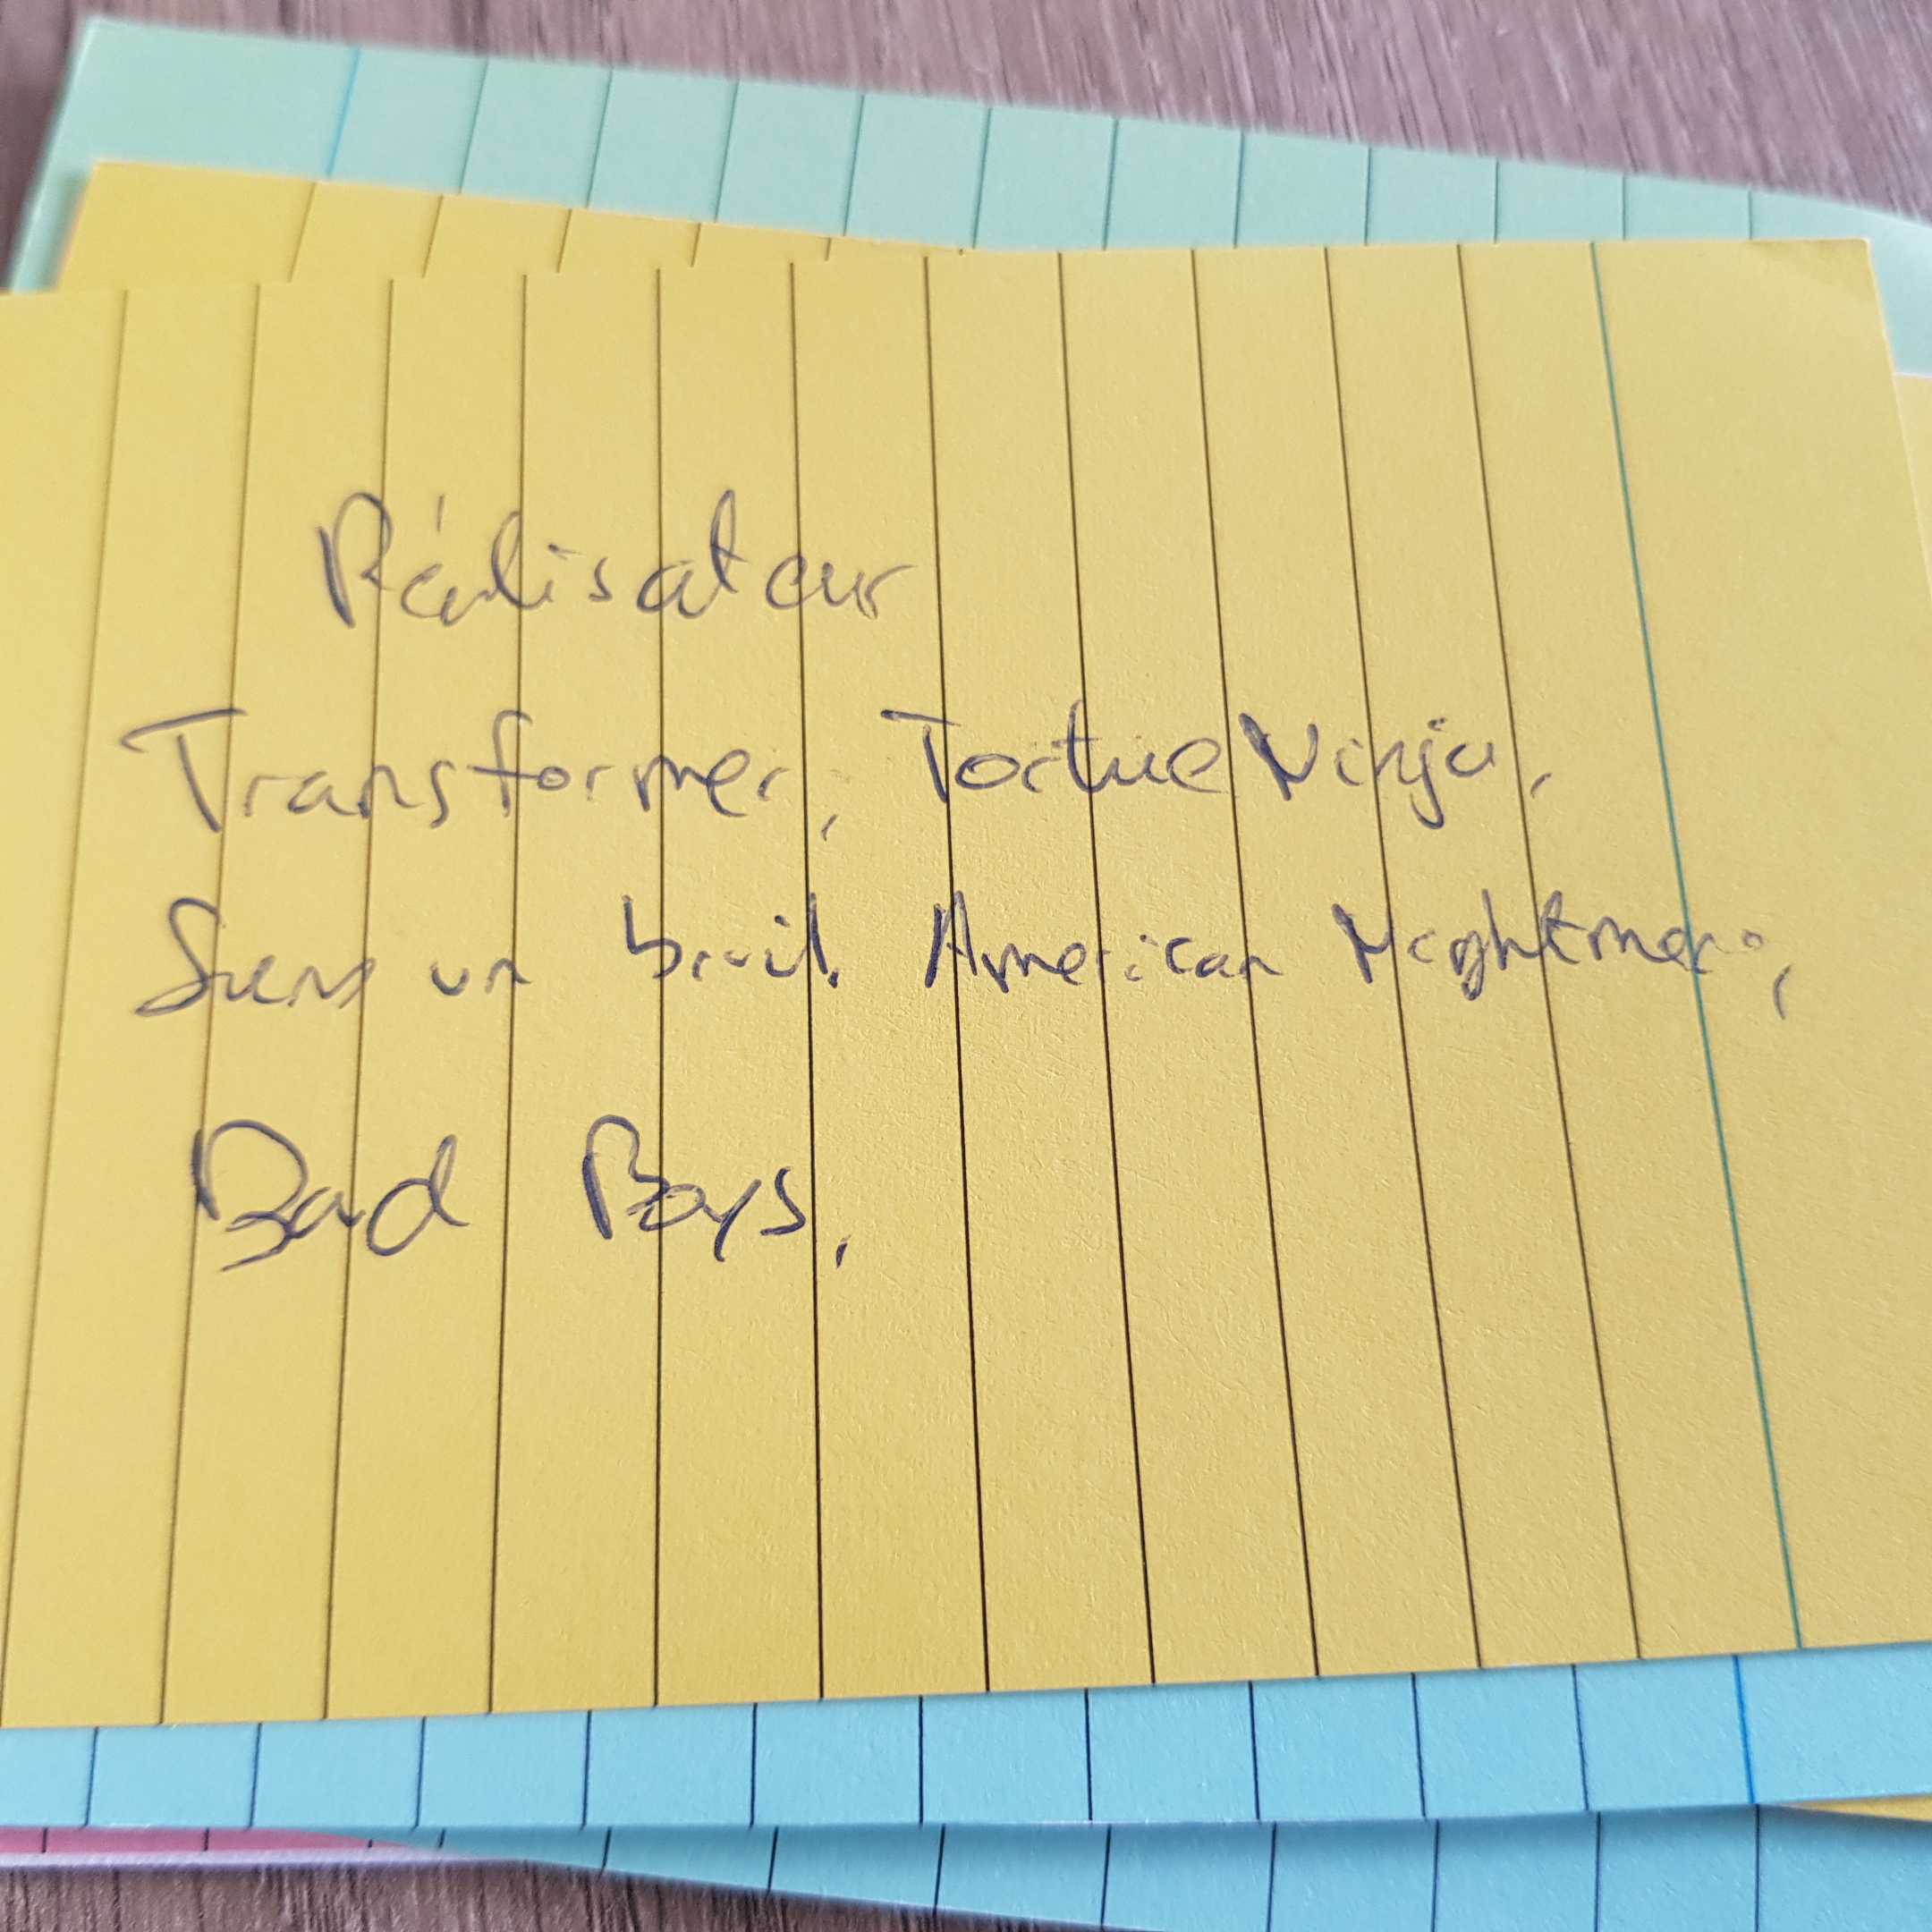 Réalisateur
Transformer, Tortue Ninja,
Sans un bruit, American Nightmare,
Bad Boys,